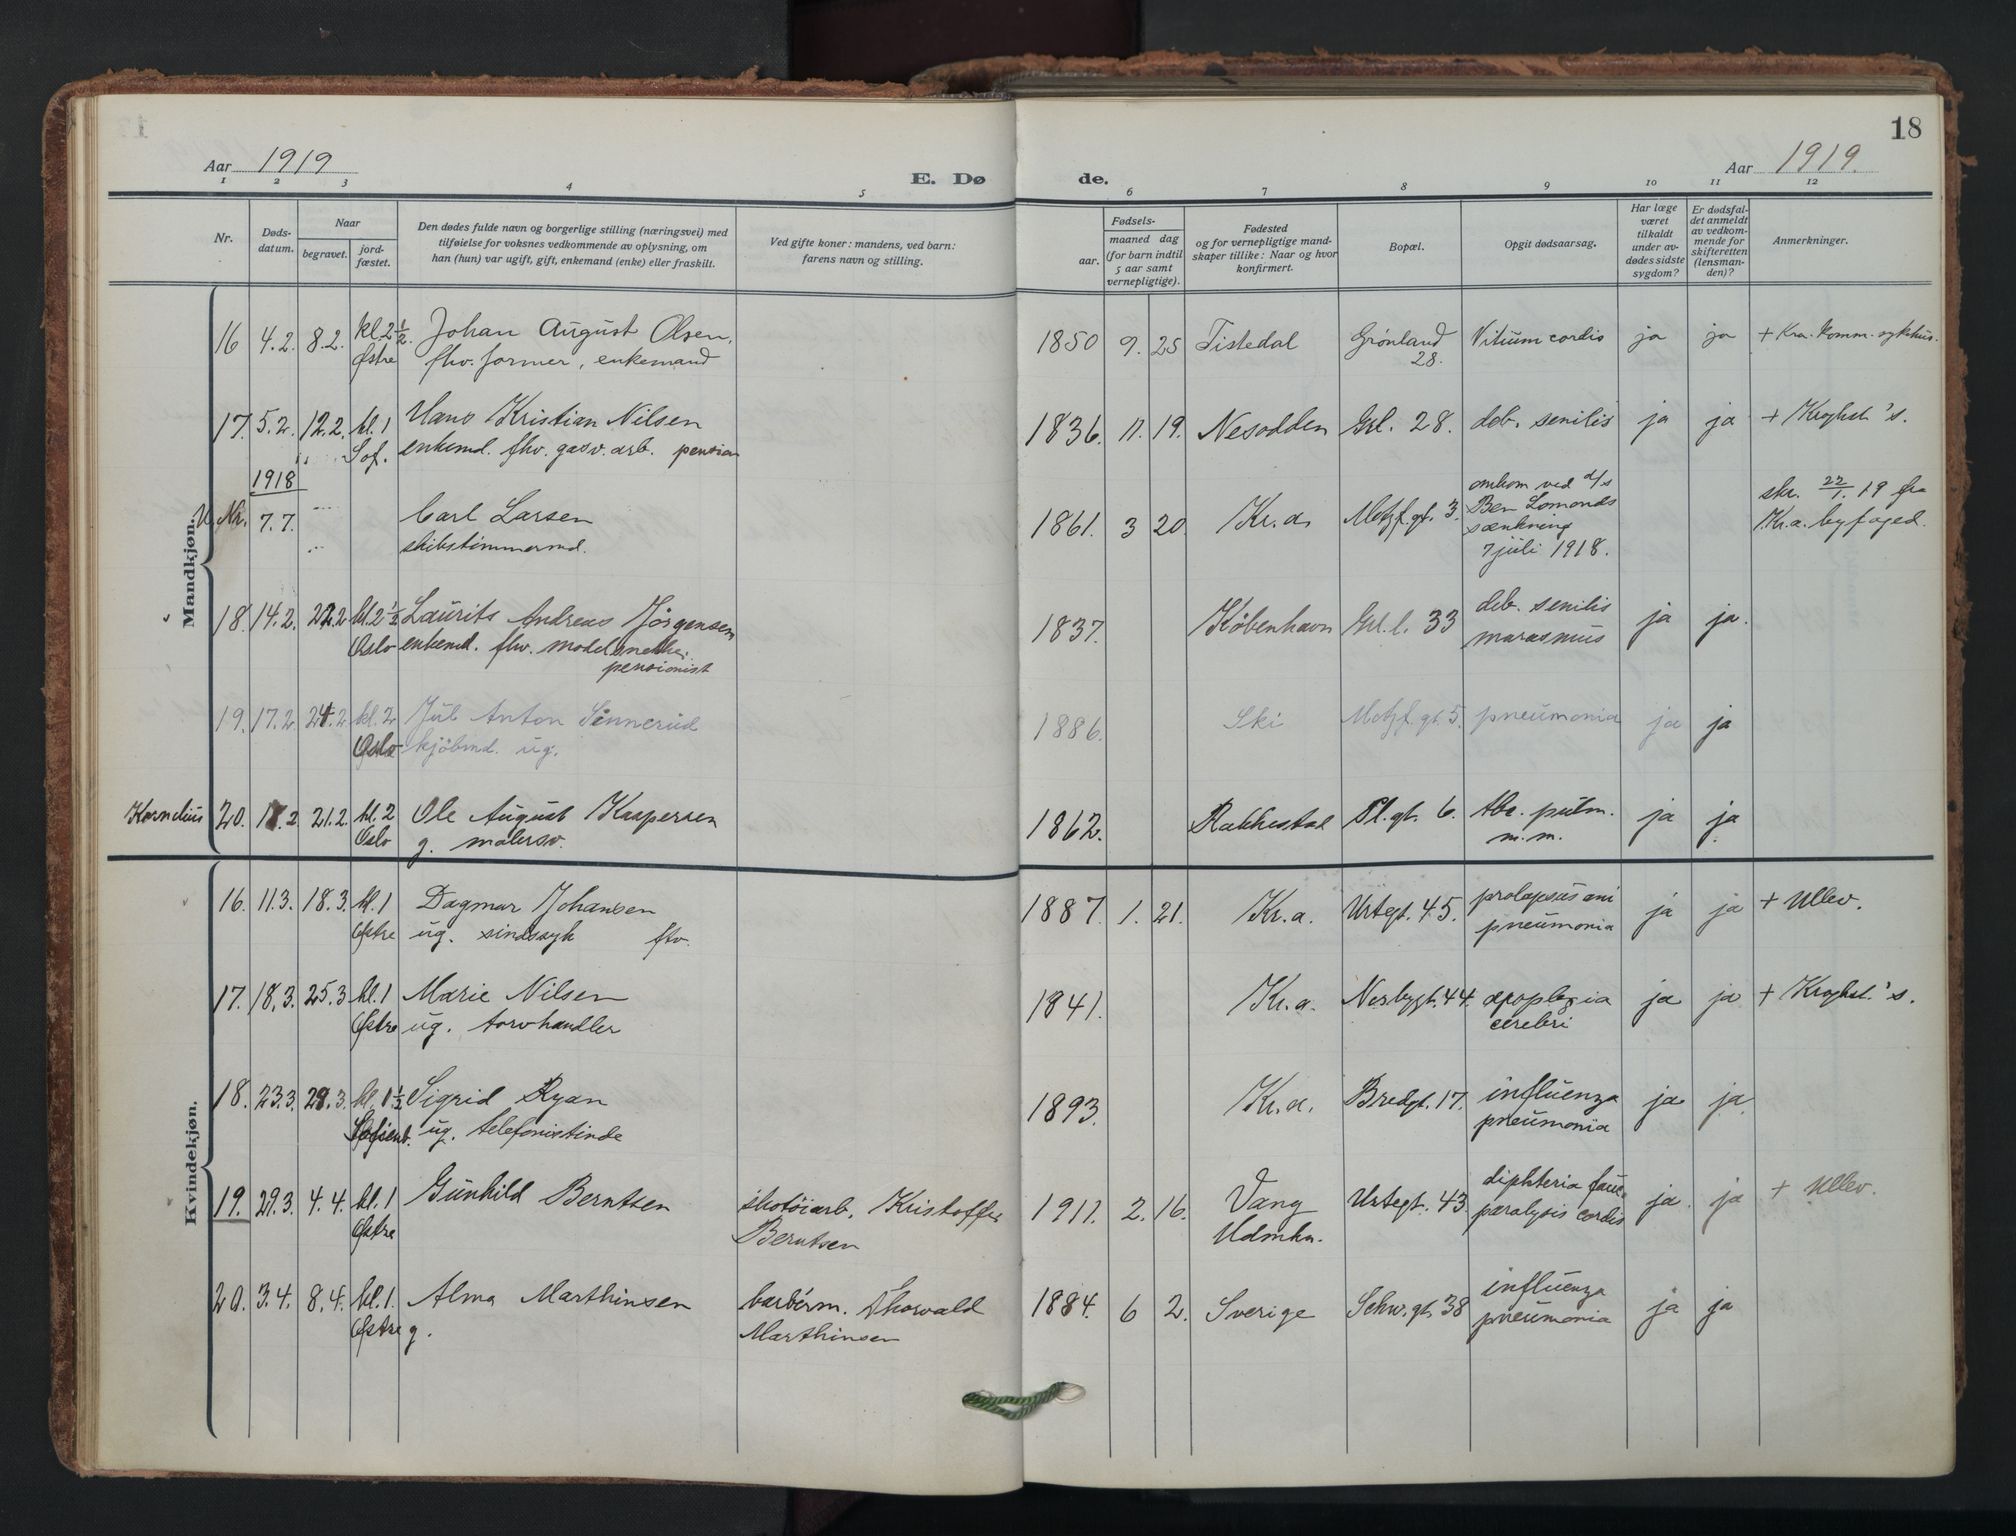 18
Aar 1919
E. Døde.
Aar 1919.
1 2 3 4 5 6 7 8 9 10 11 12
Nr.
Dødsdatum.
Naar
begravet.
jordfæstet.
Den dødes fulde navn og borgerlige stilling (næringsvei) med
tilføielse for voksnes vedkommende av oplysning, om
han (hun) var ugift, gift, enkemand (enke) eller fraskilt.
Ved gifte koner: mandens, ved barn:
farens navn og stilling.
Fødsels-
aar.
maaned dag
(for barn indtil
5 aar samt
vernepligtige).
Fødested
og for vernepligtige mand-
skaper tillike: Naar og hvor
konfirmert.
Bopæl.
Opgit dødsaarsag.
Har læge
været
tilkaldt
under av-
dødes sidste
sygdom?
Er dødsfal-
det anmeldt
av vedkom-
mende for
skifteretten
(lensman-
den)?
Anmerkninger.
Mandkjøn.
16 4.2. 8.2. kl. 2 1/2 Johan August Olsen, 1850 9. 25 Tistedal Grønland Vitium cordis ja ja + Kra. komm. sykehus.
Østre fhv. former, enkemand 28.
17. 5.2. 12.2. kl. 1 Hans Kristian Nilsen 1836. 11. 19. Nesodden Grl. 28. deb. senilis ja ja + Krohgst.'s.
Sof. enkemd. fhv. gasv. arb. pension
1918
U. Nr. 7.7. Carl Larsen 1861. 3 20. Kr.a Motzf. gt. 3. omkom ved d/s skr. 22/1. 19 fra
skibstimmermd. Ben Lomonds Kr.a. byfoged.
sænkning
7 juli 1918.
18. 14.2. 22.2 kl. 2 1/2 Laurits Andreas Jörgensen 1837. København Grl. 33 deb. senilis ja ja.
Oslo enkemd. fhv. modelsnekker marasmus
pensionist
19. 17.2. 24.2 kl. 2 Jul Anton Sinnerud 1886. Ski Motzf. gt. 5. pneumonia ja ja
Oslo kjöbmd. ug.
Kornelius 20. 18.2 21.2. kl. 2 Ole August Kaspersen 1862. Rakkestad Pl. gt. 6. tbc. pulm. ja ja
Oslo g. malersv. m.m.
Kvindekjøn.
16. 11.3. 18.3. kl. 1 Dagmar Johansen 1887. 1. 21. Kr.a. Urtegt. 45. prolapsus ani ja ja + Ullev.
Østre ug. sindssyk fhv. pneumonia
17. 18.3. 25.3 kl. 1 Marie Nilsen 1841. Kr.a. Norbygt. 44. apoplexia ja ja + Krohgst.'s.
Østre ug. torvhandler cerebri
18. 23.3. 29.3. kl. 1 1/2 Sigrid Ryan 1893. Kr.a. Bredgt. 17. influenza ja ja
Sofienb. ug. telefonistinde pneumonia
19. 29.3. 4.4. kl. 1 Gunhild Berntsen skotöiarb. Kristoffer 1911. 2. 16. Vang Urtegt. 43. diphteria fauc. ja ja + Ullev.
Østre Berntsen Hdmkn. paralysis cordis
20. 3.4. 8.4. kl. 1. Alma Marthinsen barbérm. Thorvald 1884. 6 2. Sverige Schw. gt. 38 influenza ja ja
Østre g. Marthinsen pneumonia